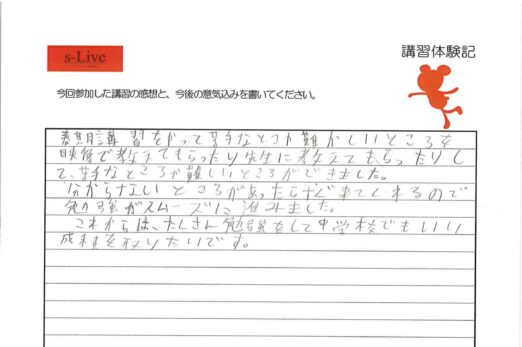 s-Live
講習体験記
今回参加した講習の感想と、今後の意気込みを書いてください。
春期講習をやって苦手なとこか難かしいところを
映像で教えてもらったり先生に教えてもらったりし
て、苦手なところが難しいところができました。
分からないところがあったらすぐ来てくれるので
勉強がスムーズに進みました。
これからは、たくさん勉強をして中学校でもいい
成績を取りたいです。